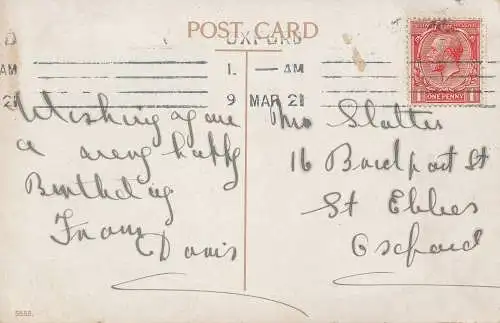 POST CARD
OXFORD
1. — AM
9 MAR 21
AM
21
ONE PENNY
Wishing you
a very happy
Birthday
From
Doris
Mrs Slatter
16 Bridport St
St Ebbes
Oxford
5552.